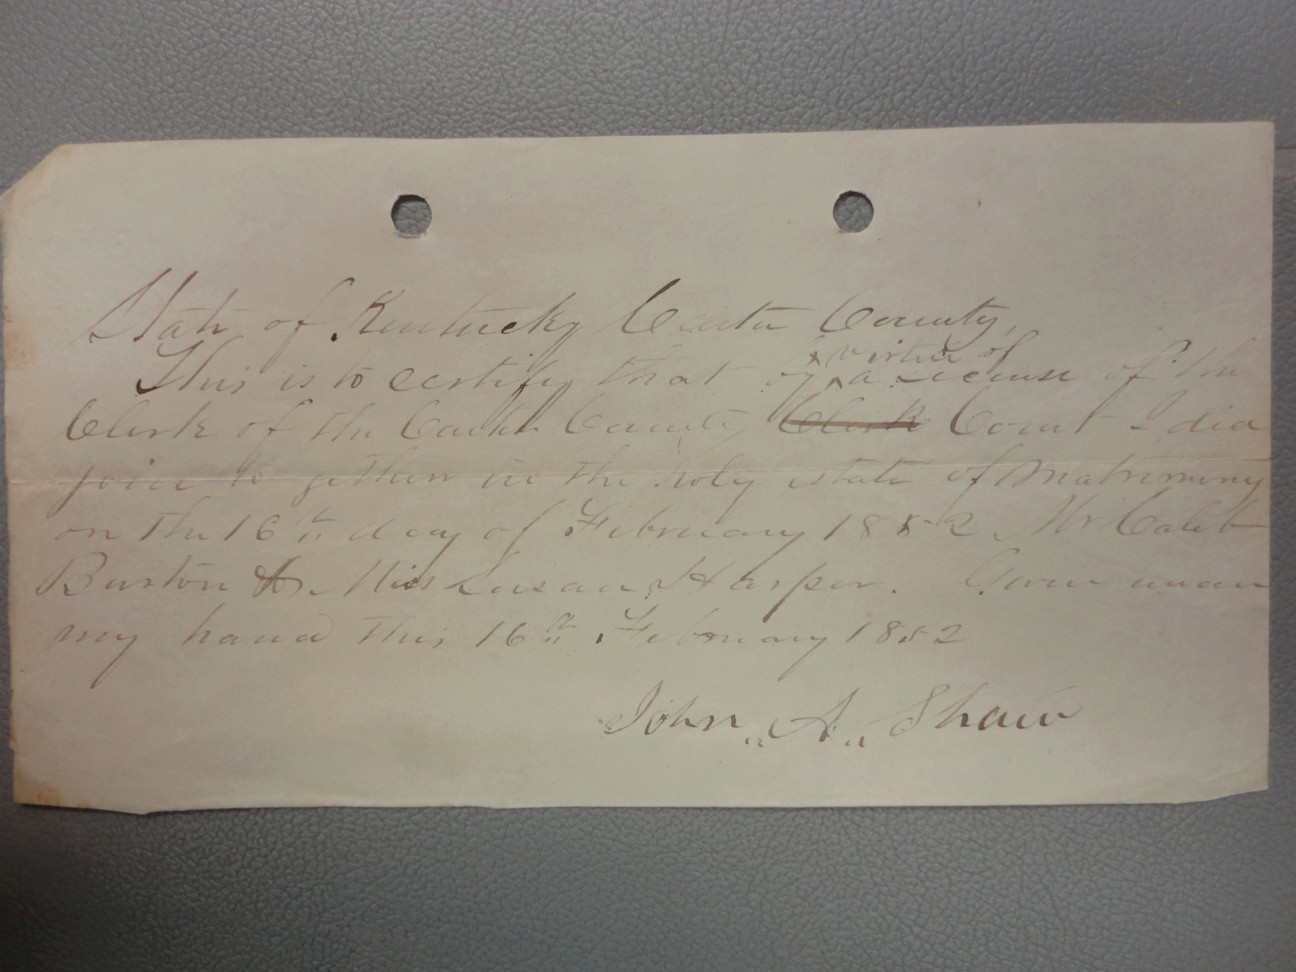 State of Kentucky Carter County,
This is to certify that by virtue of a License of the
Clerk of the Carter County Clerk Court I did
join to gether in the holy state of Matrimony
on the 16th day of February 1882 Mr Caleb
Burton & Miss Susan Harper. Given under
my hand this 16th February 1882
John A. Shaw